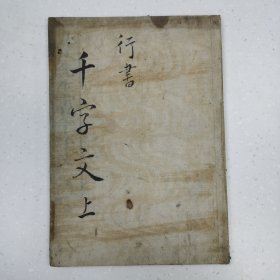 行書
千字文上